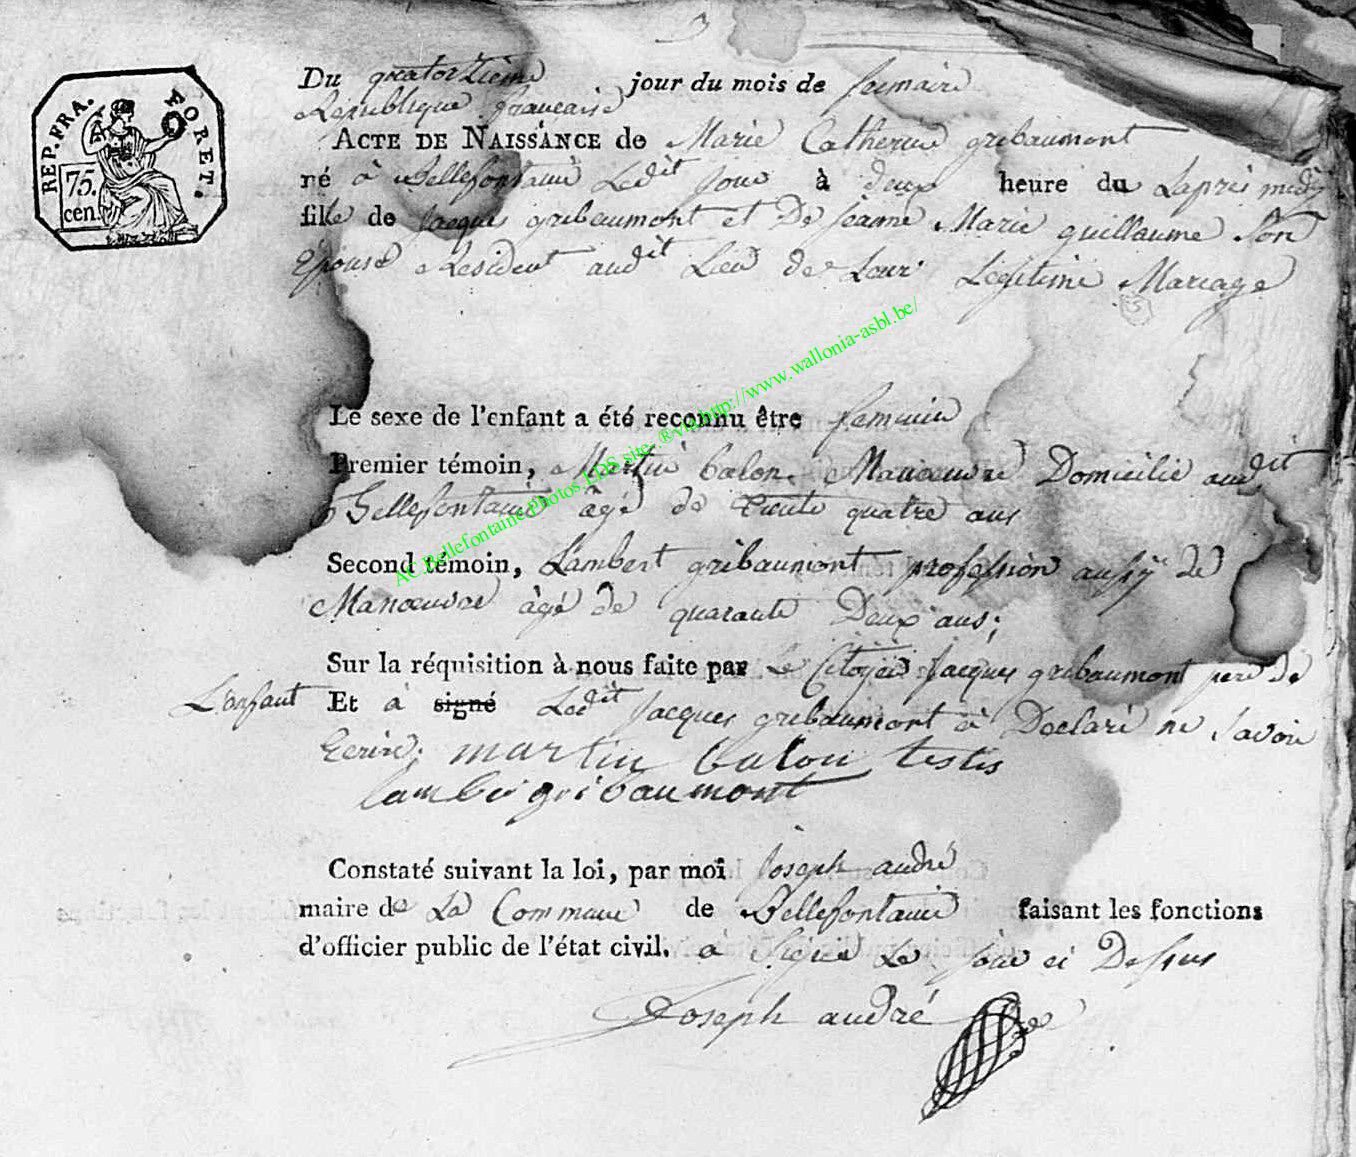 REP. FRA.
FORET.
75.
cen.
Du quatorzieme jour du mois de frimaire
Republique francaise
ACTE DE NAISSANCE de Marie Catherine gribaumont
né à Bellefontaine Ledit Jour à deux heure du Lapres midy
fille de Jacques gribaumont et De jeanne Marie guillaume Son
Epouse Resident audit Lieu de Leur Legitime Mariage
Le sexe de l'enfant a été reconnu être femenin
Premier témoin, Martin balon Manœuvre Domicilié audit
Bellefontaine âgé de trente quatre ans
Second témoin, Lambert gribaumont profession aussy de
Manœuvre âgé de quarante Deux ans;
Sur la réquisition à nous faite par Le Citoyen Jacques gribaumont pere de
L'enfant Et à signé Ledit Jacques gribaumont à Declaré ne Savoir
Ecrire. martin balon testis
lambër gribaumont
Constaté suivant la loi, par moi Joseph andré
maire de La Commune de Bellefontaine faisant les fonctions
d'officier public de l'état civil. a Signé Le Jour ci Dessus
Joseph andré
AC Bellefontaine Photos EDS site ®via http://www.wallonia-asbl.be/